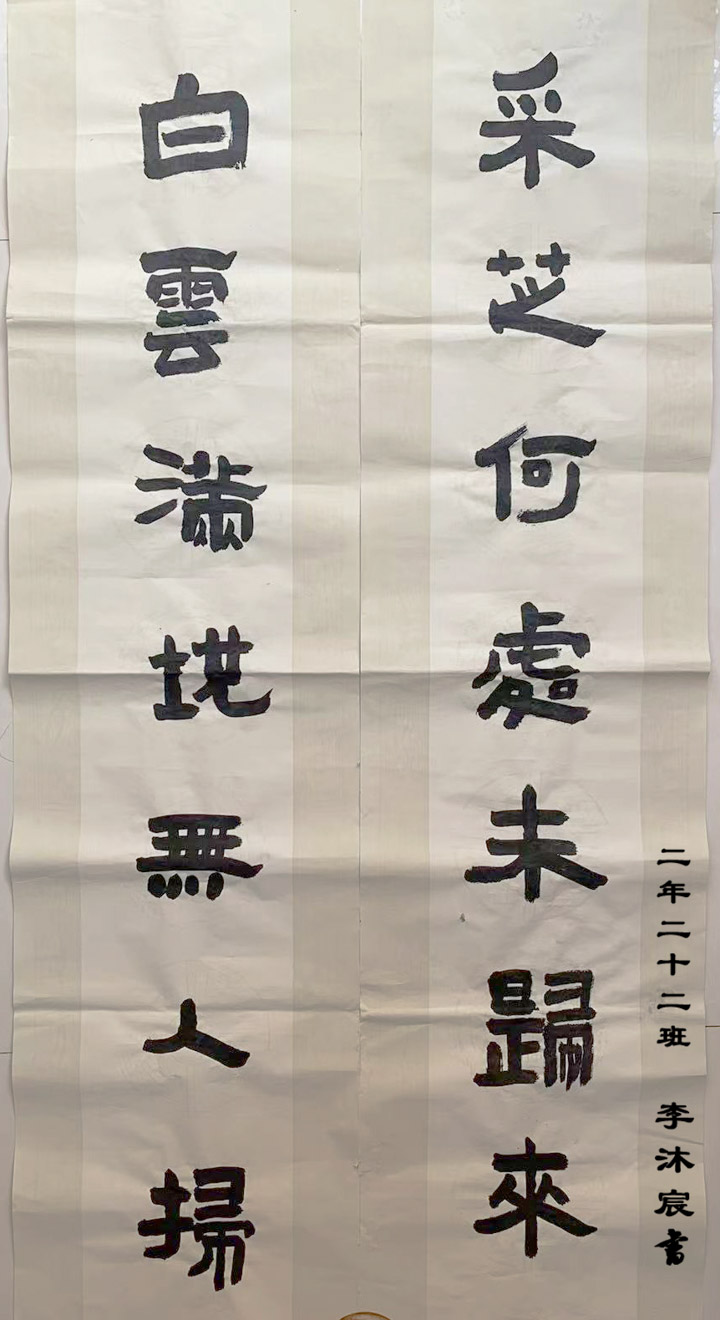 采芝何處未歸來
白雲滿地無人掃
二年二十二班 李沐宸書